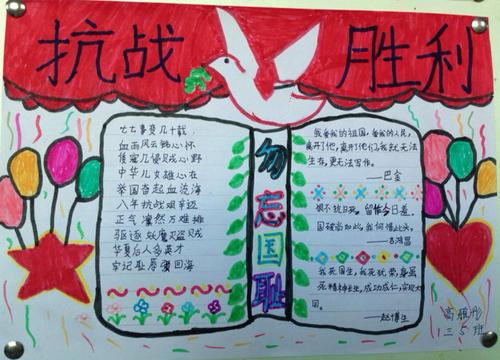 抗战 胜利
七七事变几十载
血雨风云铭心怀
中华儿女雄心在
举国奋起血流海
八年抗战艰辛迈
正气凛然万难摊
驱逐妖魔灭盗贼
华夏后人多英才
牢记耻辱
勿忘国耻
我爱我的祖国，爱我的人民，
离开了他，离开了他们我就无法
生存，更无法写作。
——巴金
恨不抗日死，留作今日羞。
国破尚如此，我何惜此头。
——吉鸿昌
我死国生，我死犹荣，身虽
死精神长生，成功成仁，实现大
同。
——赵博生
三5班